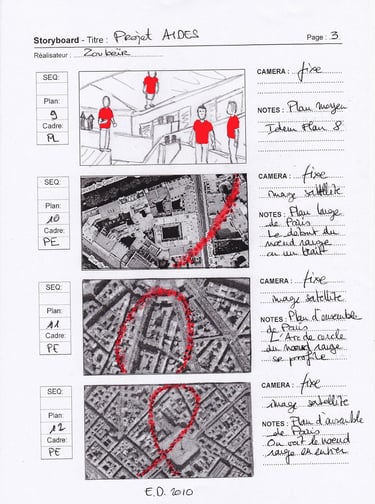 Storyboard - Titre : Projet AIDES
Page : 3
Réalisateur : Zoubeïr
SEQ:
Plan:
9
Cadre:
PL
CAMERA : fixe
NOTES : Plan moyen
Idem Plan 8
SEQ:
Plan:
10
Cadre:
PE
CAMERA : fixe
image satellite
NOTES : Plan large
de Paris
Le début du
noeud rouge
ou un trait
SEQ:
Plan:
11
Cadre:
PE
CAMERA : fixe
image satellite
NOTES : Plan d'ensemble
de Paris
L'Arc de cercle
du noeud rouge
se profile
SEQ:
Plan:
12
Cadre:
PE
CAMERA : fixe
image satellite
NOTES : Plan d'ensemble
de Paris
On voit le noeud
rouge en entier
E.D. 2010